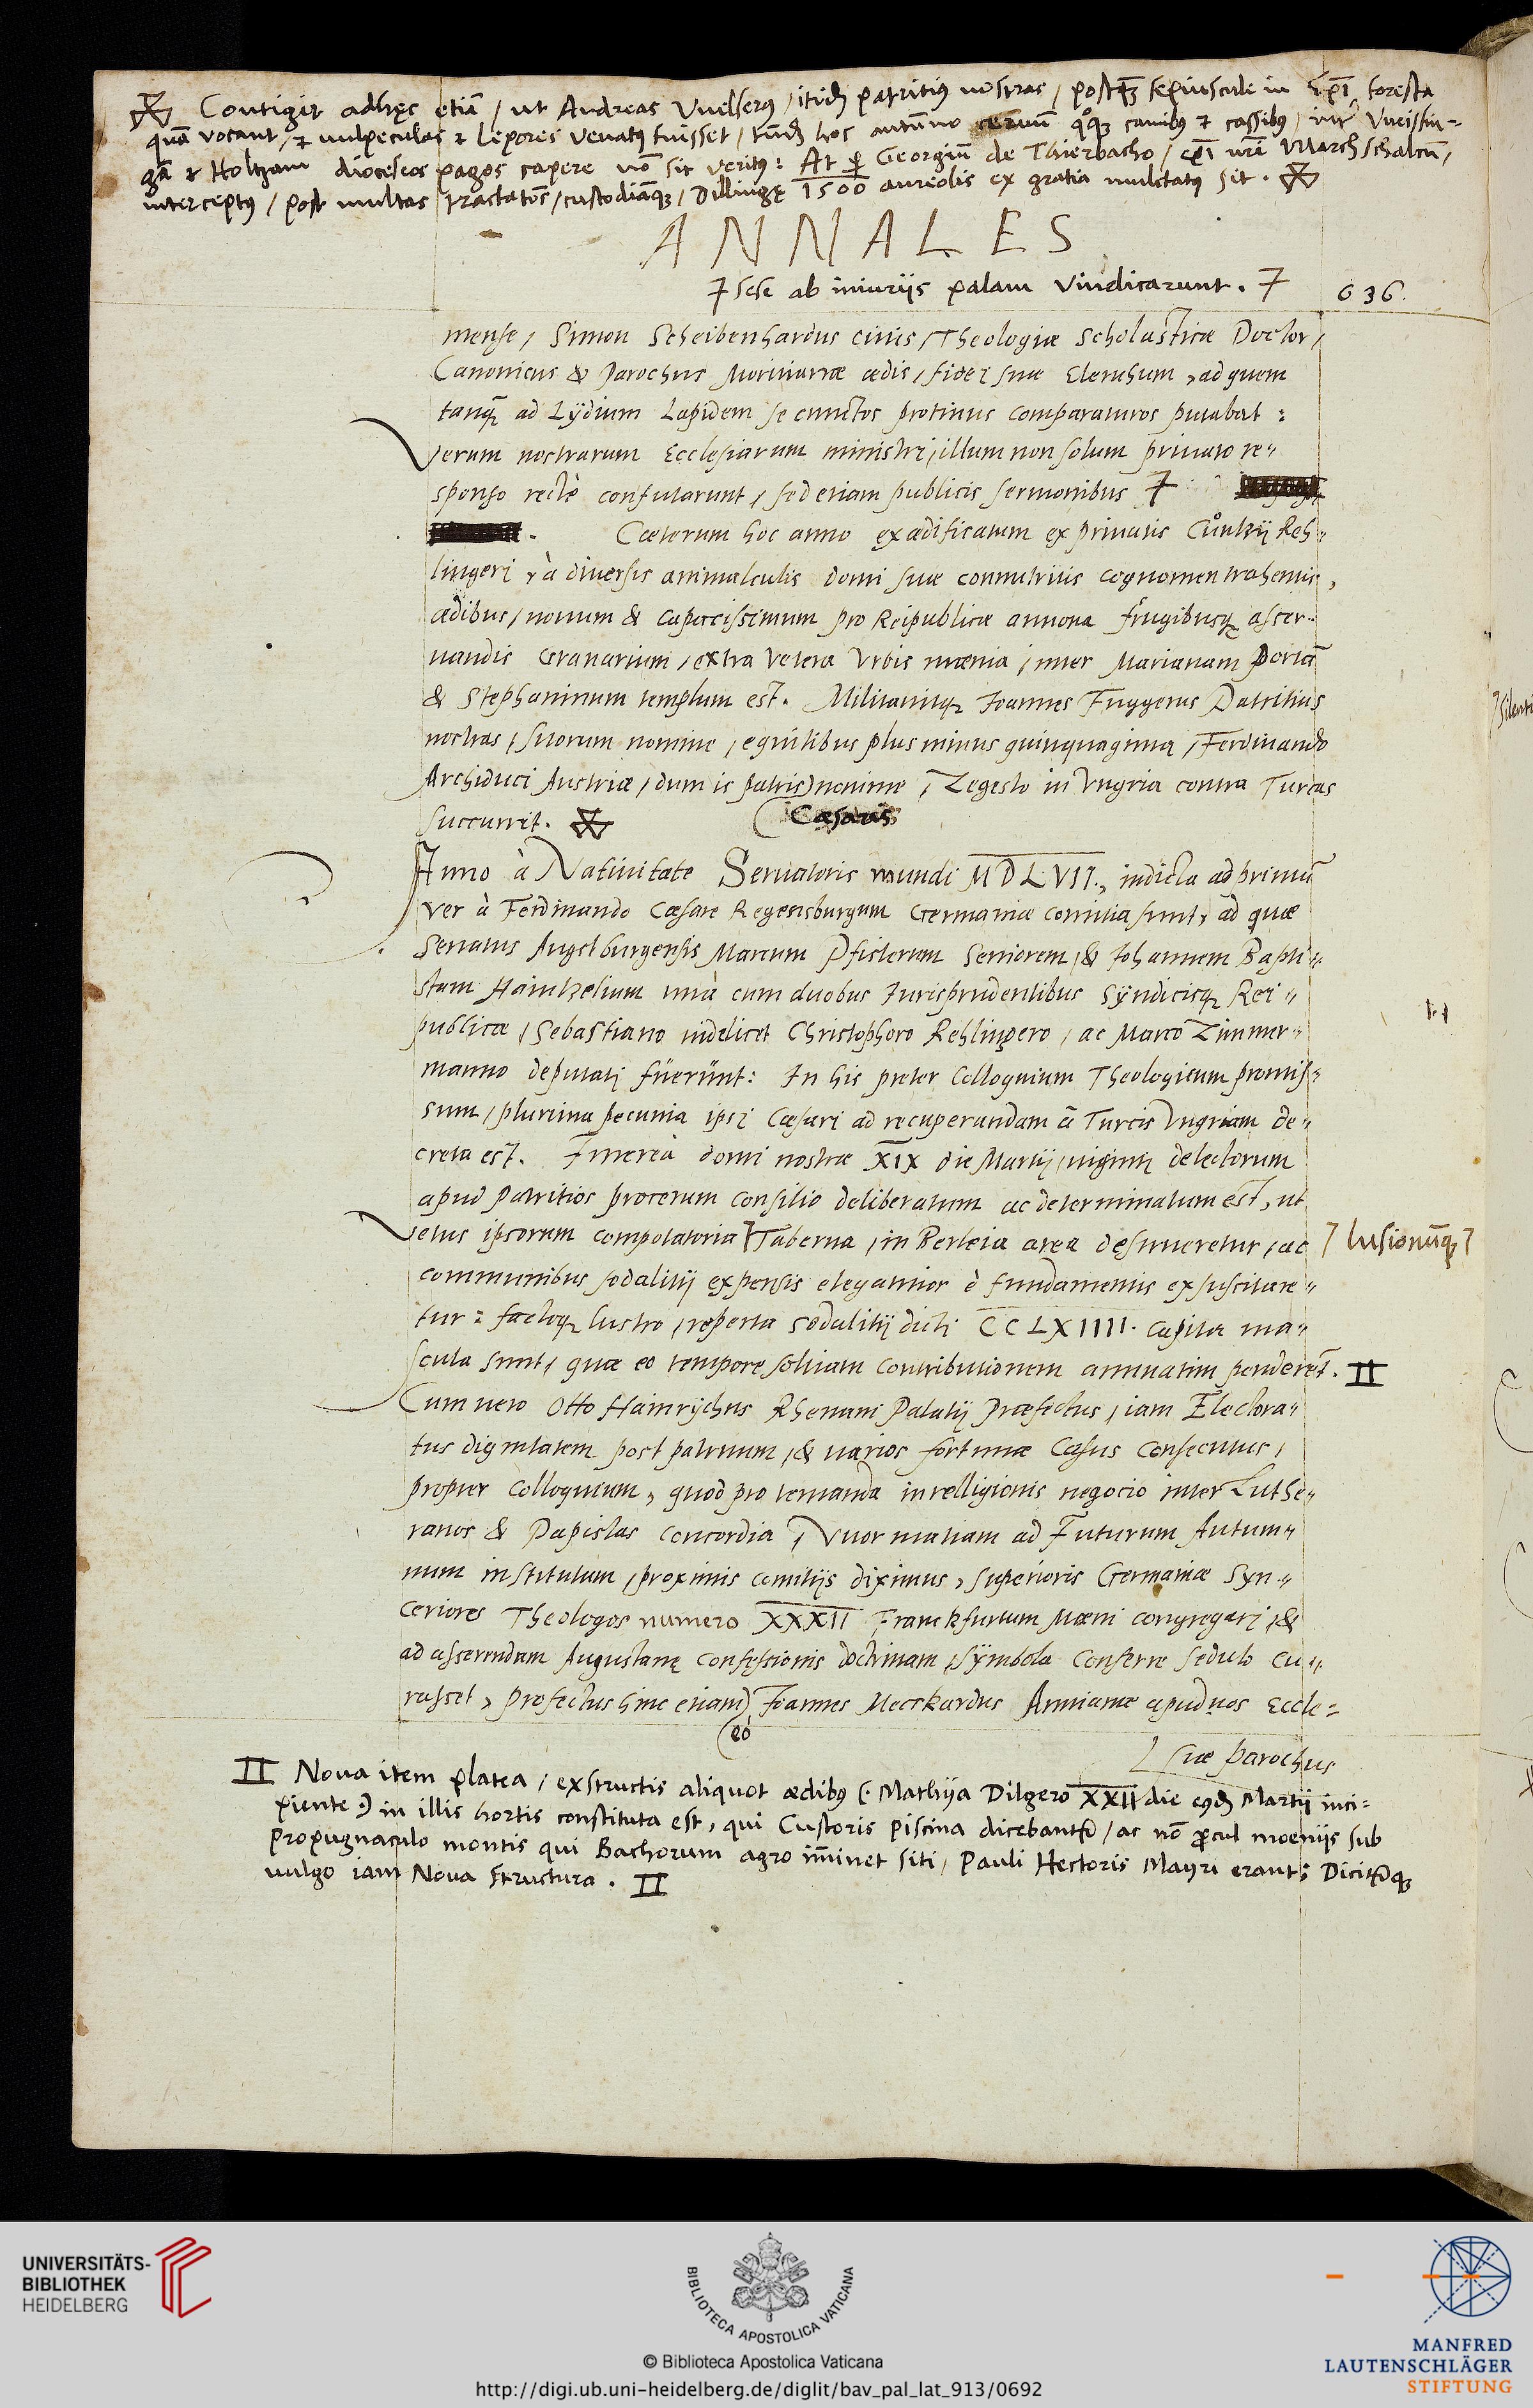 Contigit adhęc etiã / ut Andreas Vuelserꝯ / itidẽ patritius nostras / postꝗ̃ sepiuscule in Ep̃i foresta
quã vocant / et vulpeculas et Lepores venatꝯ fuisset / tandẽ hoc autũno cervũ quoqꝫ canibꝯ et cassibꝯ / inter Vueissin=
gã et Holtzam dioceseos pagos capere nõ sit veritꝯ: At ꝑ Georgiũ de Thierbacho / ep̃i nr̃i Marchschalcũ,
interceptꝯ / post multas tractatões / custodiãqꝫ / Dillingę 1500 aureolis ex gratia mulctatꝯ sit.
ANNALES
sese ab iniurijs palam vindicarunt.
636.
mense, Simon Scheibenhardus civis, Theologiæ Scholasticæ Doctor,
Canonicus & Parochus Morinianæ ædis, fidei suæ Elenchum, ad quem
tanꝗ̃ ad Lÿdium Lapidem se cunctos protinus comparaturos putabat:
Verum nostrarum Ecclesiarum ministri, illum non solum privato re=
sponso rectè confutarunt, sed etiam publicis sermonibus
. Cæterum hoc anno exædificatum ex privatis Cůntzij Reh=
lingeri, à diversis animalculis domi suæ connutritis cognomen trahentis,
ædibus, novum & capacissimum pro Reipublicæ annona frugibusqꝫ asser=
vandis Granarium, extra vetera Vrbis mænia, inter Marianam Portã
& Stephaninum templum est. Militavitqꝫ Joannes Fuggerus Patritius
nostras, suorum nomine, equitibus plus minus quinquaginta, Ferdinando
Archiduci Austriæ, dum is patris nomine, Zegesto in Vngria contra Turcas
Cæsaris
succurrit.
Anno à Nativitate Servatoris mundi MDLVII., indicta ad primũ
ver à Ferdinando Cæsare Regensburgum Germaniæ comitia sunt, ad quæ
Senatus Augstburgensis Marcum Pfisterum Seniorem, & Johannem Bapti=
stam Haintzelium unà cum duobus Jurisprudentibus Sÿndicisqꝫ Rei=
publicæ, Sebastiano videlicet Christophoro Rehlingero, ac Marco Zimmer=
manno deputati fuerunt: In his preter Colloquium Theologicum promis=
sum, plurima pecunia ipsi Cæsari ad recuperandam à Turcis Vngriam de=
creta est. Interea domi nostræ XIX die Martij, viginti delectorum
apud Patritios procerum consilio deliberatum ac determinatum est, ut
vetus ipsorum compotatoria Taberna, in Berleia area destrueretur, ac
lusionũqꝫ
communibus sodalitij expensis elegantior è fundamentis exsuscitare=
tur: factoqꝫ lustro, reperta sodalitij dicti CCLXIIII. capita ma=
scula sunt, quæ eo tempore solitam contributionem annuatim penderẽt. II
Cum vero Otto Hainrychus Rhenani Palatij Præfectus, iam Electora=
tus dignitatem post patruum, & varios fortunæ Casus consecutus,
propter Colloquium, quod pro tentanda in relligionis negocio inter Luthe=
ranos & Papistas concordia, Vuormatiam ad Futurum Autum=
num institutum, proximis comitijs diximus, superioris Germaniæ Syn=
ceriores Theologos numero XXXII Franckfurtum Mæni congregari, &
ad asserendam Augustanę confęssionis doctrinam, sÿmbola conferre sedulo cu=
rasset, profectus hinc etiam Joannes Meckardus Annianæ apud nos Eccle=
eò
siæ parochus
II Nova item platea, exstructis aliquot ædibꝯ (. Mathya Dilgero XXII die eiꝯdẽ Martij inci=
piente .) in illis hortis constituta est, qui Custoris piscina dicebantur / ac nõ procul moenijs sub
propugnaculo montis qui Bachorum agro im̃inet siti, Pauli Hectoris Mayri erant: Diciturqꝫ
vulgo iam Nova structura. II
UNIVERSITÄTS-
BIBLIOTHEK
HEIDELBERG
BIBLIOTECA APOSTOLICA VATICANA
© Biblioteca Apostolica Vaticana
http://digi.ub.uni-heidelberg.de/diglit/bav_pal_lat_913/0692
MANFRED
LAUTENSCHLÄGER
STIFTUNG